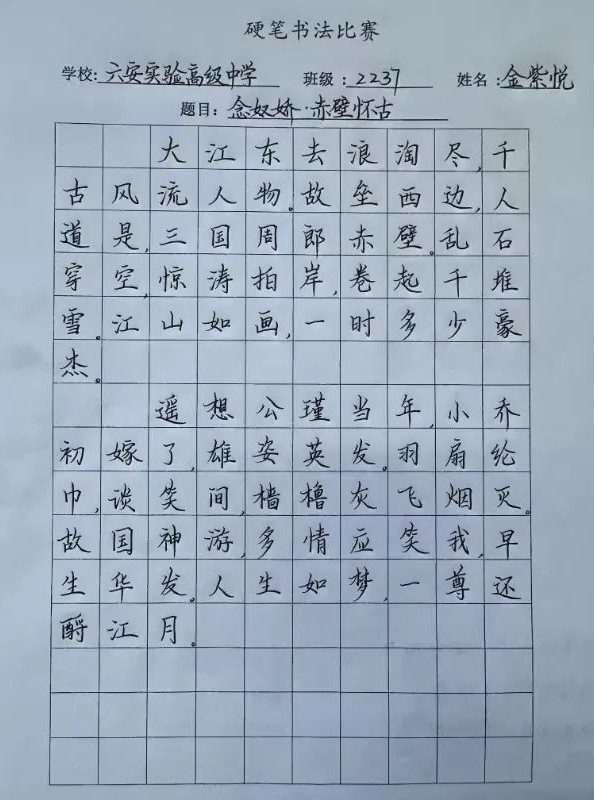 硬笔书法比赛
学校:六安实验高级中学 班级:2237 姓名:金紫悦
题目:念奴娇·赤壁怀古
大江东去浪淘尽,千
古风流人物。故垒西边,人
道是,三国周郎赤壁。乱石
穿空,惊涛拍岸,卷起千堆
雪。江山如画,一时多少豪
杰。
遥想公瑾当年,小乔
初嫁了,雄姿英发。羽扇纶
巾,谈笑间,樯橹灰飞烟灭。
故国神游,多情应笑我,早
生华发。人生如梦,一尊还
酹江月。